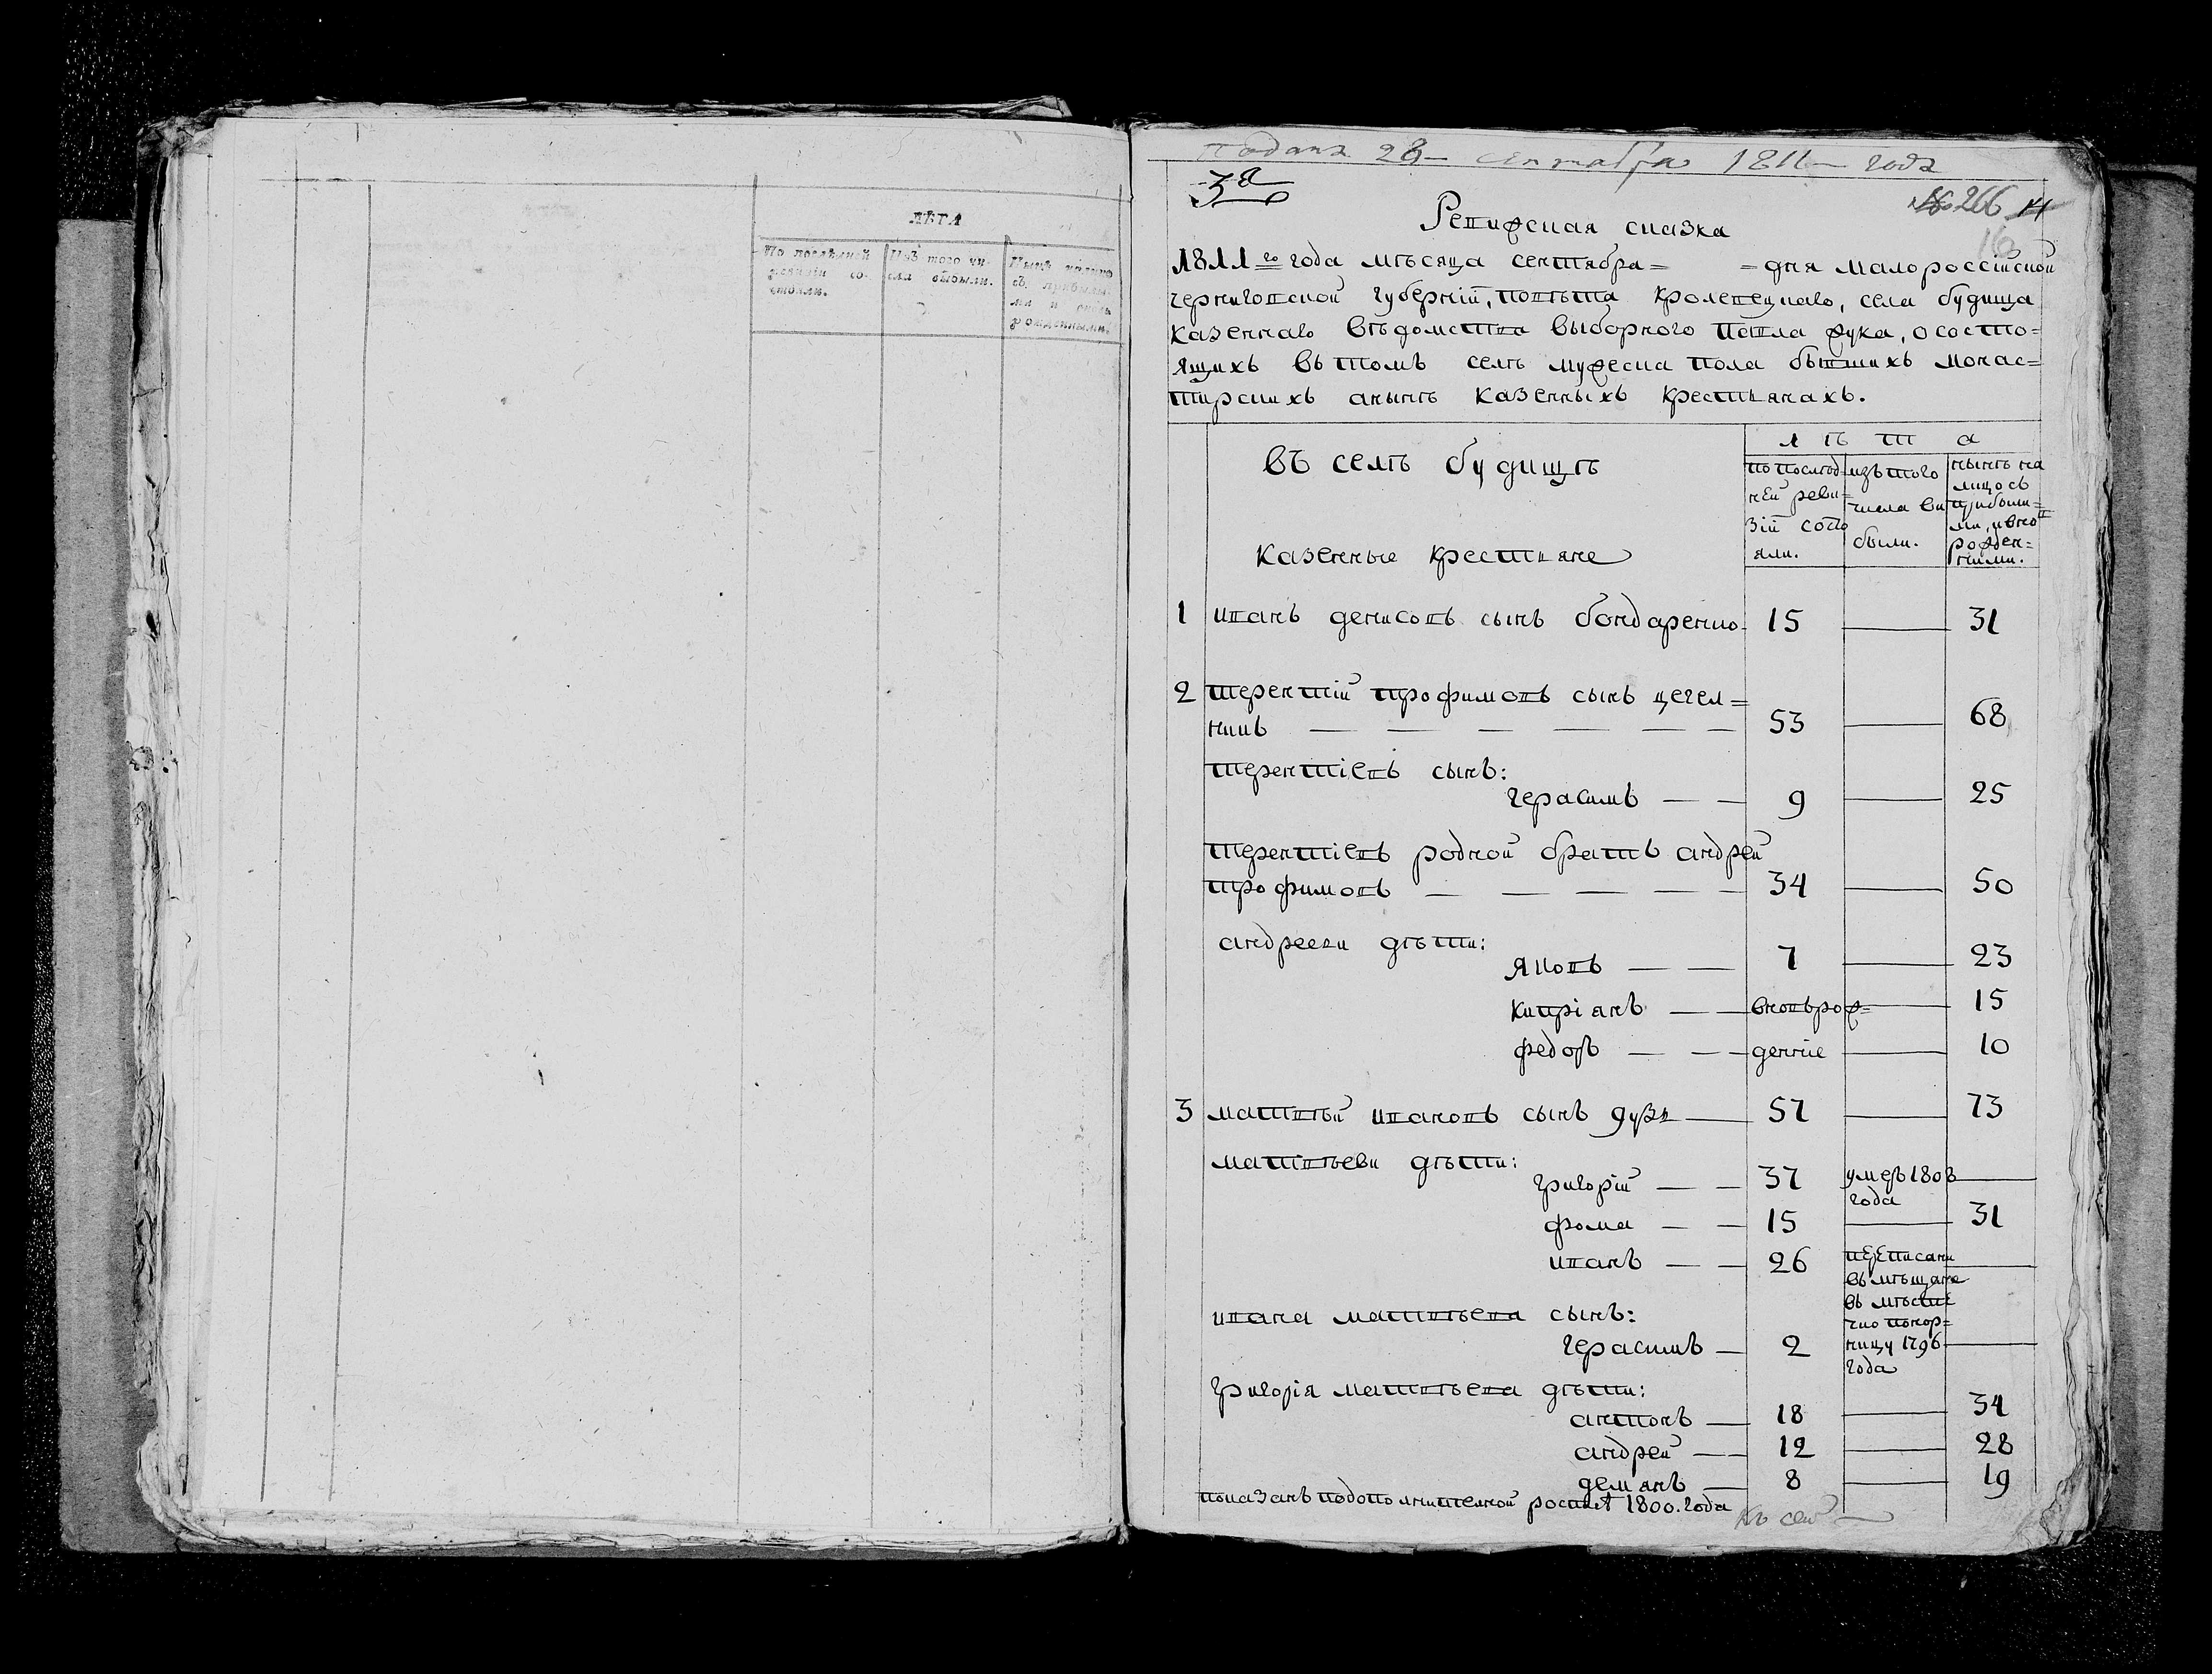 ЛѢТА
По послѣдней ревизіи состояли.
Изъ того числа выбыли.
Нынѣ на лицо съ прибылыми и вновь рожденными.
Подана 28 сентября 1811 года
3я
№ 266
Ревижская сказка
1811го года мѣсяца сентября= =дня малороссійской
черниговской губерній, повѣта кролевецкаго, села будища
казеннаго вѣдомства выборного павла жука, о состо=
ящихъ въ томъ селѣ мужеска пола бывшихъ монас=
тирскихъ анынѣ казенныхъ крестьянахъ.
въ селѣ будищѣ
казенные крестьяне
лѣта
по послѣд
ней реви=
зій состо
яли.
изъ того
числа ви
были.
нынѣ на
лицо съ
прибыли=
ми, ивно
рожден=
ними.
1 иванъ денисовъ сынъ бондаренко 15 — 31
2 терентій трофимовъ сынъ цегел=
никъ — — — — — — 53 — 68
терентіевъ сынъ:
герасимъ — — 9 — 25
терентіевъ родной братъ андрей
трофимовъ — — — — — 34 — 50
андрееви дѣти:
яковъ — — 7 — 23
кипріянъ — — вновьрож= — 15
федоръ — — денніе — 10
3 матвѣй ивановъ сынъ дуза — 57 — 73
матвѣеви дѣти:
григорій — — 37 умеръ 1803 —
года
фома — — 15 — 31
иванъ — — 26 переписани —
въ мѣщане
въ мѣстеч
ивана матвѣева сынъ:
ко понор=
герасимъ — 2 ницу 1796 —
года
григорія матвѣева дѣти:
антонъ — 18 — 34
андрей — 12 — 28
демянъ — 8 — 19
показанъ подополнителной роспис 1800. года
Къ сей